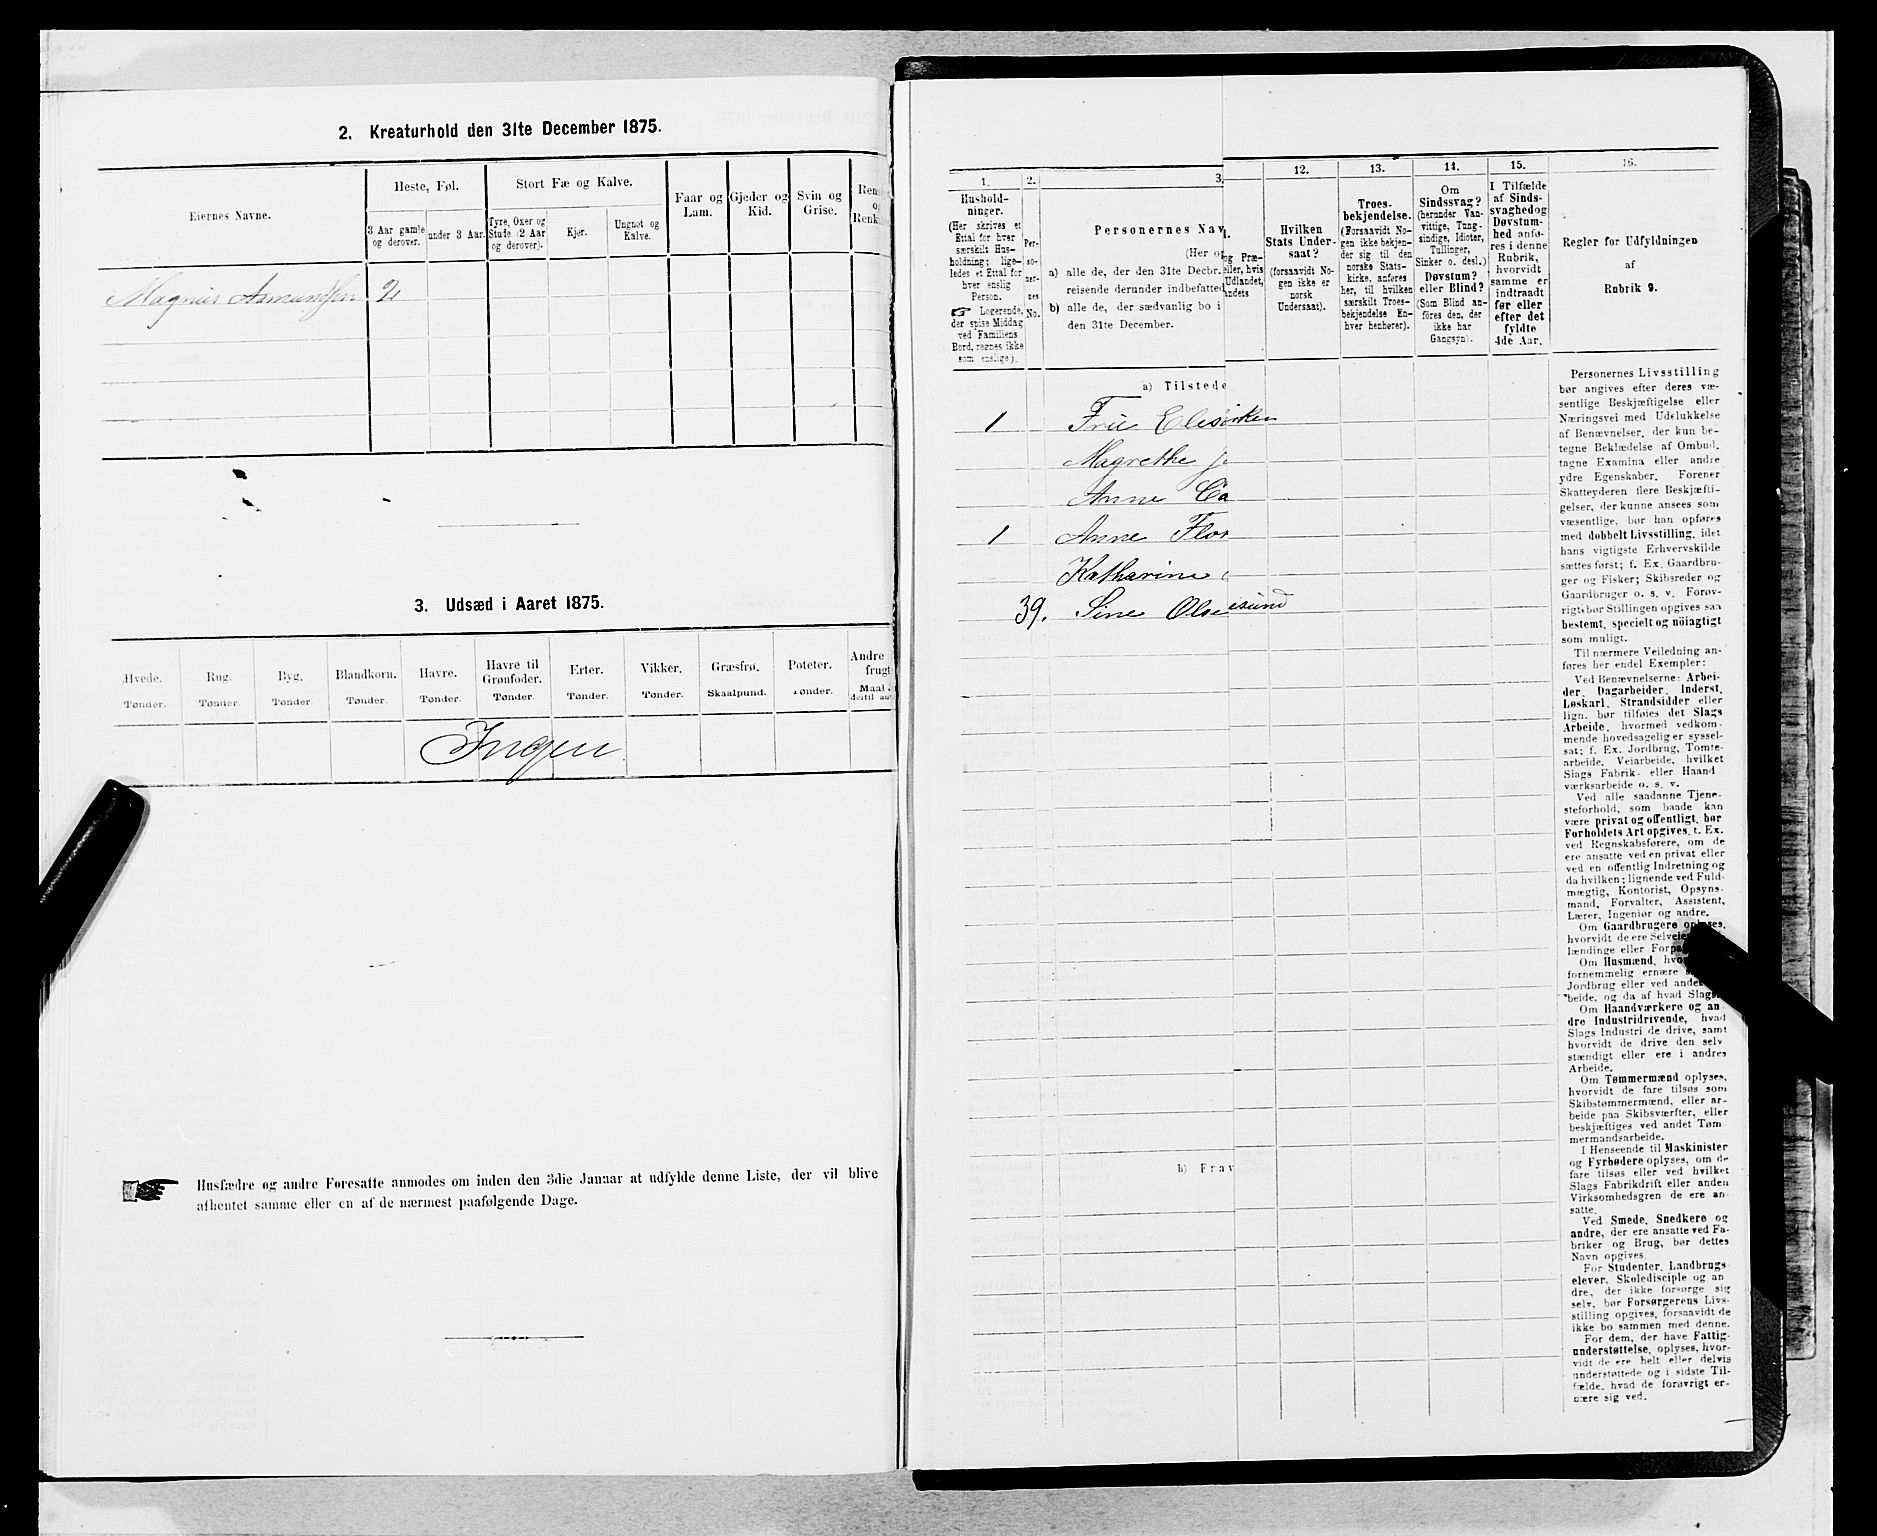 2. Kreaturhold den 31te December 1875.
Eiernes Navne.
Heste, Føl.
3 Aar gamle og derover.
under 3 Aar.
Stort Fæ og Kalve.
Tyre, Oxer og Stude (2 Aar og derover).
Kjør.
Ungnøt og Kalve.
Faar og Lam.
Gjeder og Kid.
Svin og Grise.
Magnus Asmundsen 2
3. Udsæd i Aaret 1875.
Hvede. Rug. Byg. Blandkorn. Havre. Havre til Grønfoder. Erter. Vikker. Græsfrø. Poteter. Andre
Tønder. Tønder. Tønder. Tønder. Tønder. Tønder. Tønder. Tønder. Skaalpund. Tønder. Maal
Ingen
Husfædre og andre Foresatte anmodes om inden den 3die Januar at udfylde denne Liste, der vil blive
afhentet samme eller en af de nærmest paafølgende Dage.
1.
Hushold-
ninger.
(Her skrives et
Ettal for hver
særskilt Hus-
holdning; lige-
ledes et Ettal for
hver enslig
Person.
☞ Logerende,
der spise Middag
ved Familiens
Bord, regnes ikke
som enslige).
2.
Per-
so-
ner-
nes
No.
3.
Personernes Nav
(Her o
a) alle de, der den 31te Decbr.
reisende derunder indbefatted
b) alle de, der sædvanlig bo i
den 31te December.
12.
Hvilken
Stats Under-
saat?
(forsaavidt No-
gen ikke er
norsk
Undersaat).
13.
Troes-
bekjendelse.
(Forsaavidt No-
gen ikke bekjen-
der sig til den
norske Stats-
kirke, anføres
her, til hvilken
særskilt Troes-
bekjendelse En-
hver henhører).
14.
Om
Sindssvag?
(herunder Van-
vittige, Tung-
sindige, Idioter,
Tullinger,
Sinker o. desl.)
Døvstum?
eller Blind?
(Som Blind an-
føres den, der
ikke har
Gangsyn).
15.
I Tilfælde
af Sinds-
svaghed og
Døvstum-
hed anfø-
res i denne
Rubrik,
hvorvidt
samme er
indtraadt
før eller
efter det
fyldte
4de Aar.
16.
Regler for Udfyldningen
af
Rubrik 9.
a) Tilstede
1
Magrethe
Anne Ca
1 Anne Flor
Katharine
39. Sine Olse
b) Frav
Personernes Livsstilling
bør angives efter deres væ-
sentlige Beskjæftigelse eller
Næringsvei med Udelukkelse
af Benævnelser, der kun be-
tegne Beklædelse af Ombud,
tagne Examina eller andre
ydre Egenskaber. Forener
Skatteyderen flere Beskjæfti-
gelser, der kunne ansees som
væsentlige, bør han opføres
med dobbelt Livsstilling, idet
hans vigtigste Erhvervskilde
sættes først; f. Ex. Gaardbru-
ger og Fisker; Skibsreder og
Gaardbruger o. s. v. Forøv-
rigt bør Stillingen opgives saa
bestemt, specielt og nöiagtigt
som muligt.
Til nærmere Veiledning an-
føres her endel Exempler:
Ved Benævnelserne: Arbei-
der, Dagarbeider, Inderst,
Løskarl, Strandsidder eller
lign. bør tilføies det Slags
Arbeide, hvormed vedkom-
mende hovedsagelig er syssel-
sat; f. Ex. Jordbrug, Tomte-
arbeide, Veiarbeide, hvilket
Slags Fabrik- eller Haand
værksarbeide o. s. v.
Ved alle saadanne Tjene-
steforhold, som baade kan
være privat og offentligt, bør
Forholdets Art opgives, t. Ex.
ved Regnskabsførere, om de
ere ansatte ved en privat eller
ved en offentlig Indretning og
da hvilken; lignende ved Fuld-
mægtig, Kontorist, Opsyns-
mand, Forvalter, Assistent,
Lærer, Ingeniør og andre.
Om Gaardbrugere oplyses,
hvorvidt de ere
lændinge eller
Om Husmænd,
fornemmelig ernære
Jordbrug eller ved andet
beide, og da af hvad Slags.
Om Haandværkere og an-
dre Industridrivende, hvad
Slags Industri de drive, samt
hvorvidt de drive den selv
stændigt eller ere i andres
Arbeide.
Om Tømmermænd oplyses,
hvorvidt de fare tilsøs som
Skibstømmermænd, eller ar-
beide paa Skibsværfter, eller
beskjæftiges ved andet Tøm
mermandsarbeide.
I Henseende til Maskinister
og Fyrbødere oplyses, om de
fare tilsøs eller ved hvilket
Slags Fabrikdrift eller anden
Virksomhedsgren de ere an-
satte.
Ved Smede, Snedkere og
andre, der ere ansatte ved Fa-
briker og Brug, bør dettes
Navn opgives.
For Studenter, Landbrugs
elever, Skoledisciple og an
dre, der ikke forsørge sig
selv, bør Forsørgerens Livs-
stilling opgives, forsaavidt de
ikke bo sammen med denne.
For dem, der have Fattig-
understøttelse, oplyses, hvor-
vidt de ere helt eller delvis
understøttede og i sidste Til-
fælde, hvad de forøvrigt er-
nære sig ved.